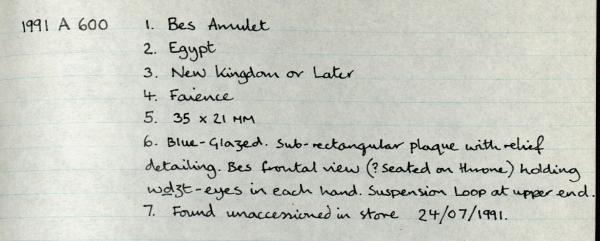 1991 A 600 1. Bes Amulet
2. Egypt
3. New Kingdom or Later
4. Faience
5. 35 x 21 MM
6. Blue-Glazed. Sub-rectangular plaque with relief
detailing. Bes frontal view (? seated on throne) holding
wḏꜣt-eyes in each hand. Suspension Loop at upper end.
7. Found unaccessioned in store 24/07/1991.